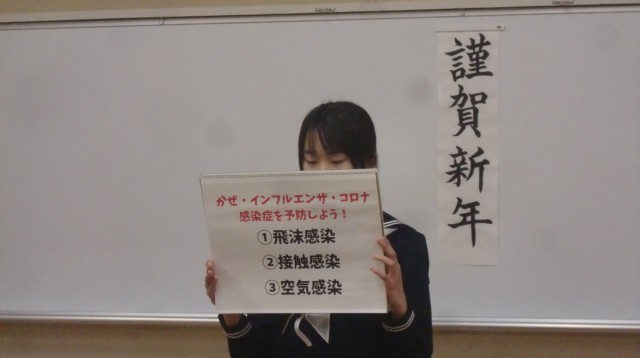 かぜ・インフルエンザ・コロナ
感染症を予防しよう！
①飛沫感染
②接触感染
③空気感染
謹賀新年